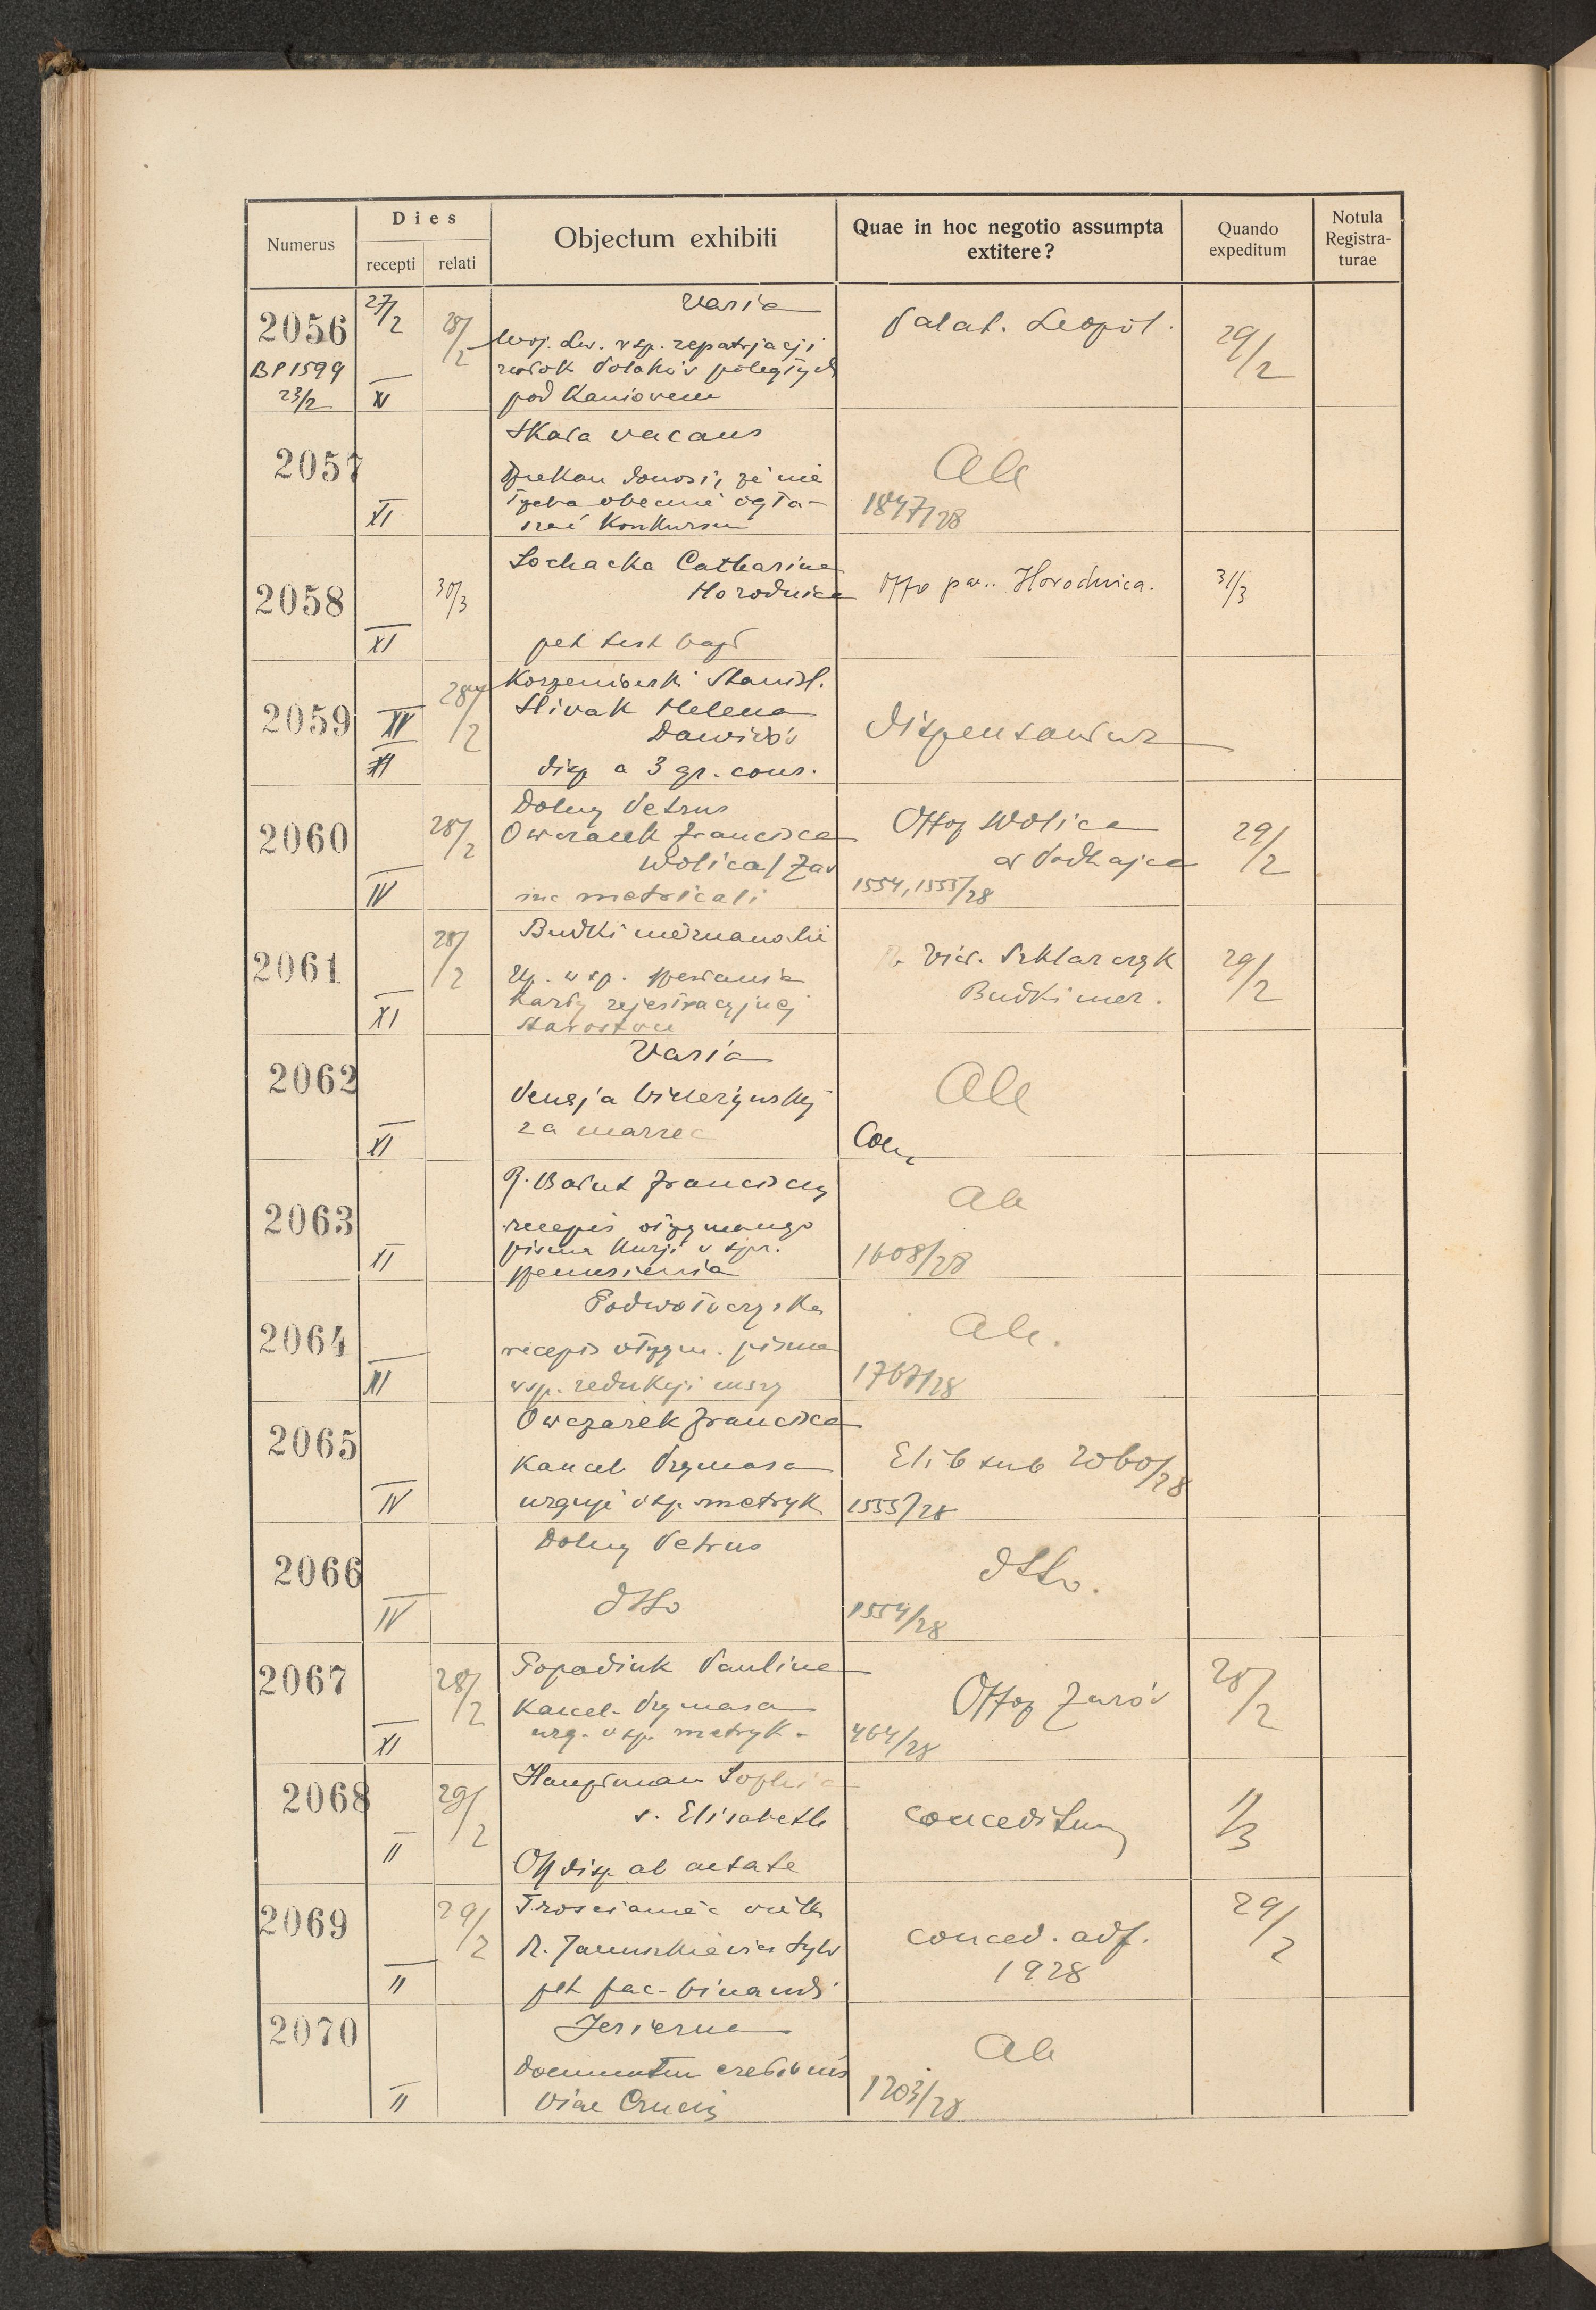 Numerus
Dies
recepti
relati
Objectum exhibiti
Quae in hoc negotio assumpta
extitere?
Quando
expeditum
Notula
Registra-
turae
2056
BP 1599
23/2
27/2
XV
28/2
Varia
Woj. Lw. w sp. repatrjacji
zwłok Polaków poległych
pod Kaniowem
Palat. Leopol.
29/2
2057
XI
Skała vacans
Dziekan donosi, że nie
trzeba obecnie ogła-
szać Konkursu
Ale
1847/28
2058
XI
30/3
Lochacka Catharina
Horodnica
pet test bapt
Offo par. Horodnica.
31/3
2059
XV
XI
28/2
Korzeniowski Stanisl.
Slivak Helena
Dawidów
disp a 3 gr. cons.
Dispensantur
2060
IV
28/2
Dolny Petrus
Owczarek Francisca
Wolica/Zav
in metricali
Offop Wolica
ad Podhajce
1554, 1555/28
29/2
2061
XI
28/2
Budki nieznanowskie
w sp.
karty rejestracyjnej
Starostwu
Vic. Szklarczyk
Budki niez.
29/2
2062
XI
Varia
Pensja
za marzec
Ale
2063
XI
R. Barut Franciscus
recepis otrzymanego
pisma Kurji w spr.
przeniesienia
Ale
1608/28
2064
XI
Podwołoczyska
recepis otrzym. pisma
w sp. redukcji mszy
Ale.
1767/28
2065
IV
Owczarek Francisca
Kancel. Prymasa
urguje w sp. metryk
Elib sub 2060/28
1555/28
2066
IV
Dolny Petrus
dtto
dtto.
1554/28
2067
XI
28/2
Popadiuk Paulina
Kancel. Prymasa
urg. w sp. metryk.
Offop Żurów
464/28
28/2
2068
II
29/2
Hauptman Sophia
v. Elisabeth
Off disp ab aetate
conceditur
1/3
2069
II
29/2
Trościaniec wielki
R. Januszkiewicz Sylv
pet fac. binandi
conced. adf.
1928
29/2
2070
II
Jezierna
Documentum erectionis
Viae Crucis
Ale
1203/28